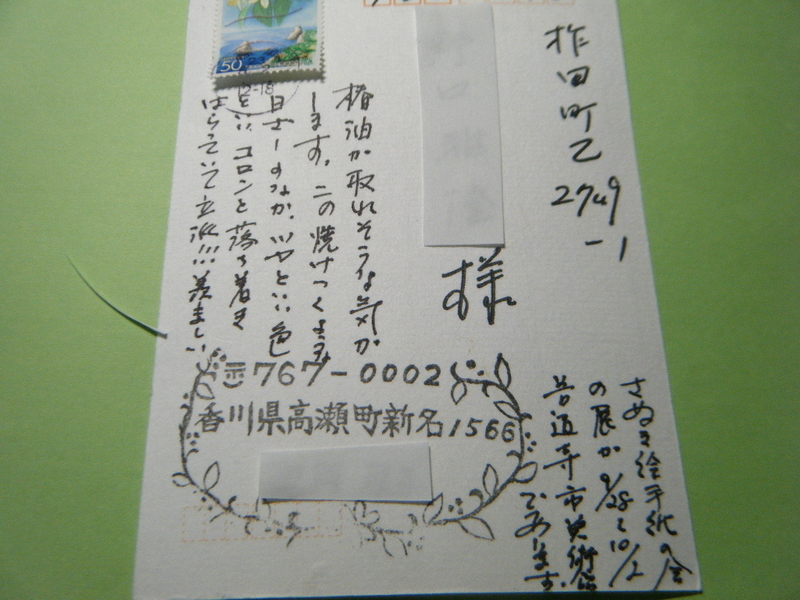 50
12-18
柞田町乙
2749
-1
様
椿油が取れそうな気が
します。この焼けつくような
日ざしのなか、ツヤといい色
といい、コロンと落ち着き
はらっていて立派!!!羨ましい
〒767-0002
香川県高瀬町新名1566
さぬき絵手紙の会
の展が9/28~10/2
善通寺市美術館
であります。